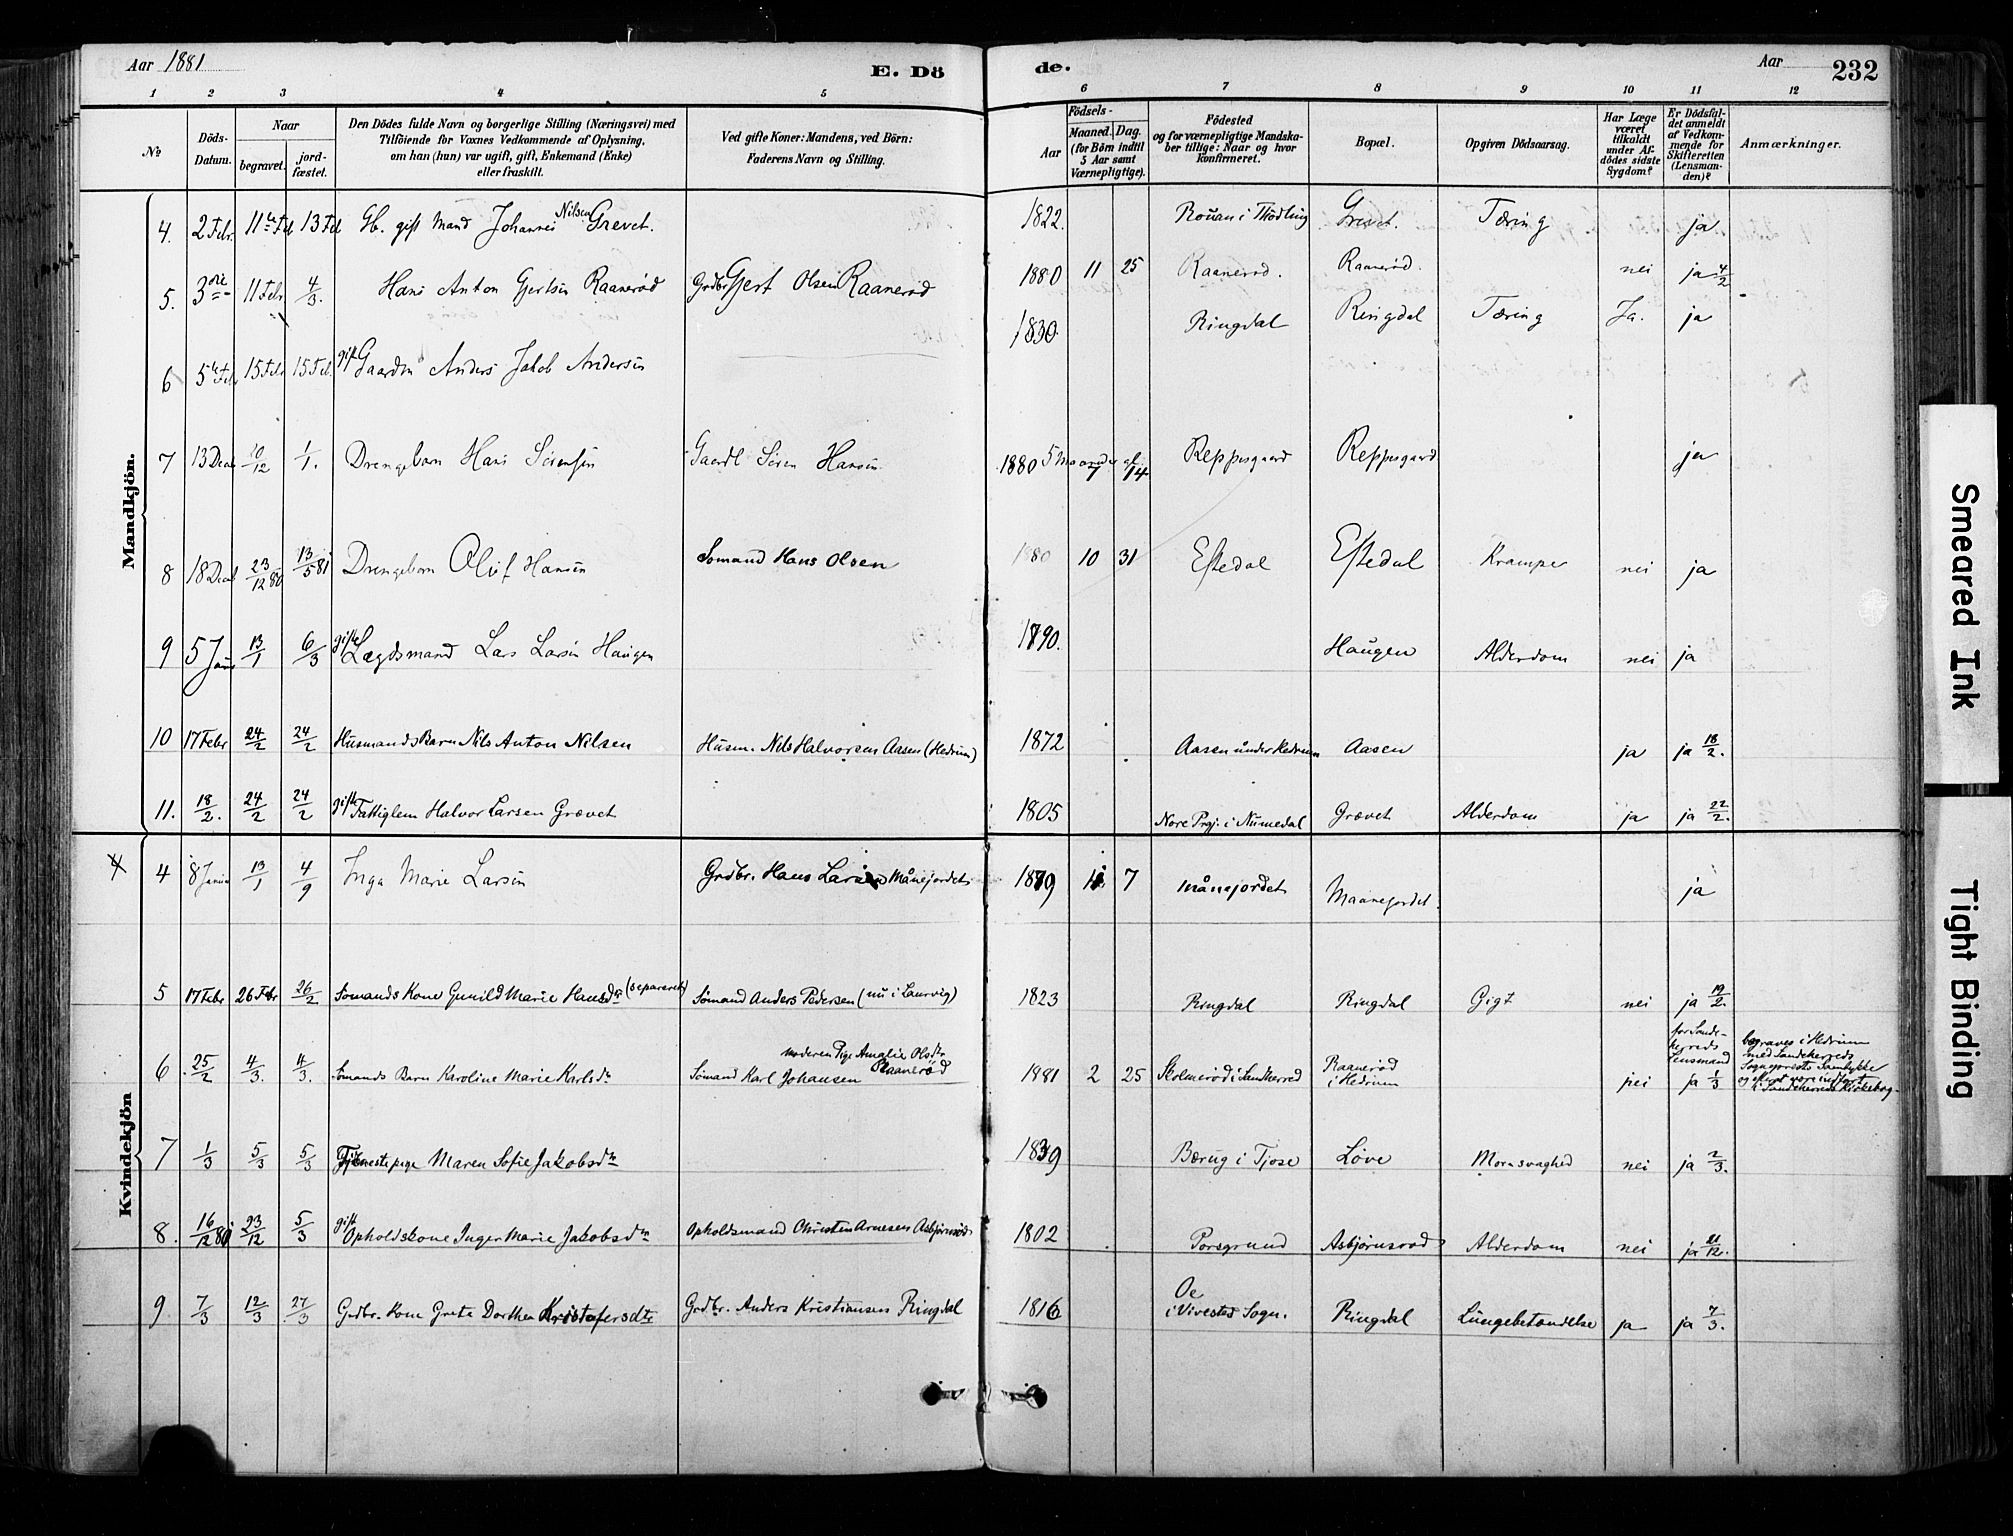 Aar 1881
E. Döde.
Aar
232
1 2 3 4 5 6 7 8 9 10 11 12
No
Döds-Datum.
Naar
begravet.
jordfæstet.
Den Dödes fulde Navn og borgerlige Stilling (Næringsvei) med
Tilföiende for Voxnes Vedkommende af Oplysning,
om han (hun) var ugift, gift, Enkemand (Enke)
eller fraskilt.
Ved gifte Koner: Mandens, ved Börn:
Faderens Navn og Stilling.
Födsels-
Aar
Maaned. Dag.
(for Börn indtil
5 Aar samt
Værnepligtige).
Födested
og for værnepligtige Mandskaber tillige: Naar og hvor
konfirmeret.
Bopæl.
Opgiven Dödsaarsag.
Har Læge
været
tilkaldt
under Afdödes sidste
Sygdom?
Er Dödsfaldet anmeldt
af Vedkommende for
Skifteretten
(Lensmanden)?
Anmærkninger.
Mandkjön.
4. 2 Febr. 11te Feb 13 Feb gift Mand Johannes Nilsen Grevet. 1822. Grevet. Tæring ja
5. 3die 11 Febr 4/3. Hans Anton Gjertsen Raanerød Grdbr Gjert Olsen Raanerød 1880 11 25 Raanerød. Raanerød. nei ja 4/2
6 5te Feb 15 Feb 15 Feb. gift Gaardm Anders Jakob Andersen 1830 Ringdal Ringdal Tæring Ja. ja
7 13 Decb 1/1. Drengebarn Hans Sörensen Gaardb Sören Hansen 1880 5 Maaneder gl 7 14 Reppesgaard Reppesgaard ja
8 18 Decb 23/12 80 13/5 81 Drengebarn Oluf Hansen Sømand Hans Olsen 1880 10 31 Eftedal Eftedal Krampe nei ja
9 5 Janr 13/1 6/3 gift Lægdsmand Lars Larsen Haugen 1790. Haugen Alderdom nei ja
10 17 Febr 24/2 24/2 Husmands Barn Nils Anton Nilsen Husm. Nils Halvorsen Aasen (Hedrum) 1872 Aasen under Hedrum Aasen ja ja 18/2.
11. 18/2. 24/2 24/2 gift Fattiglem Halvor Larsen Grævet 1805 Nore Prgj. i Numedal Grævet Alderdom ja ja 22/2.
Kvindekjön
4 8 Janua 13/1 4/9 Inga Marie Larsen Grdbr. Hans Larsen Månejordet 1879 11 7 Månejordet Maanejordet. ja
5 17 Febr 26 Febr 26/2 Sømands Kone Gunild Marie Hansdr (separeret) Sømand Anders Pedersen (nu i Laurvig) 1823 Ringdal Ringdal Gigt nei ja 19/2.
6. 25/2 4/3. 4/3. Sømands Barn Karoline Marie Karlsdr Sømand Karl Johansen moderen Pige Amalie Olsdr Raanerød 1881 2 25 Skolmerød i Sandeherred Raanerød i Hedrum nei for Sandeherreds Lensmand ja 1/3 begraves i Hedrum med Sandeherreds Sogneprests Samtykke
7 1/3 5/3 5/3 Tjenestepige Maren Sofie Jakobsdr 1839 Bærug i Tjose Løve nei ja 2/3.
8. 16/12 80 23/12 5/3 gift Opholdskone Inger Marie Jakobsdr Opholdsmand Christen Arnesen Asbjørnsrød 1802 Porsgrund Asbjørnsrød Alderdom nei ja 21/12.
9. 7/3 12/3 27/3 Grdbr. Kone Grete Dorthea Kristofersdtr Grdbr. Anders Kristiansen Ringdal 1816 Oe i Vivestad Sogn. Ringdal Lungebetændelse ja ja 7/3.
Smeared Ink
Tight Binding